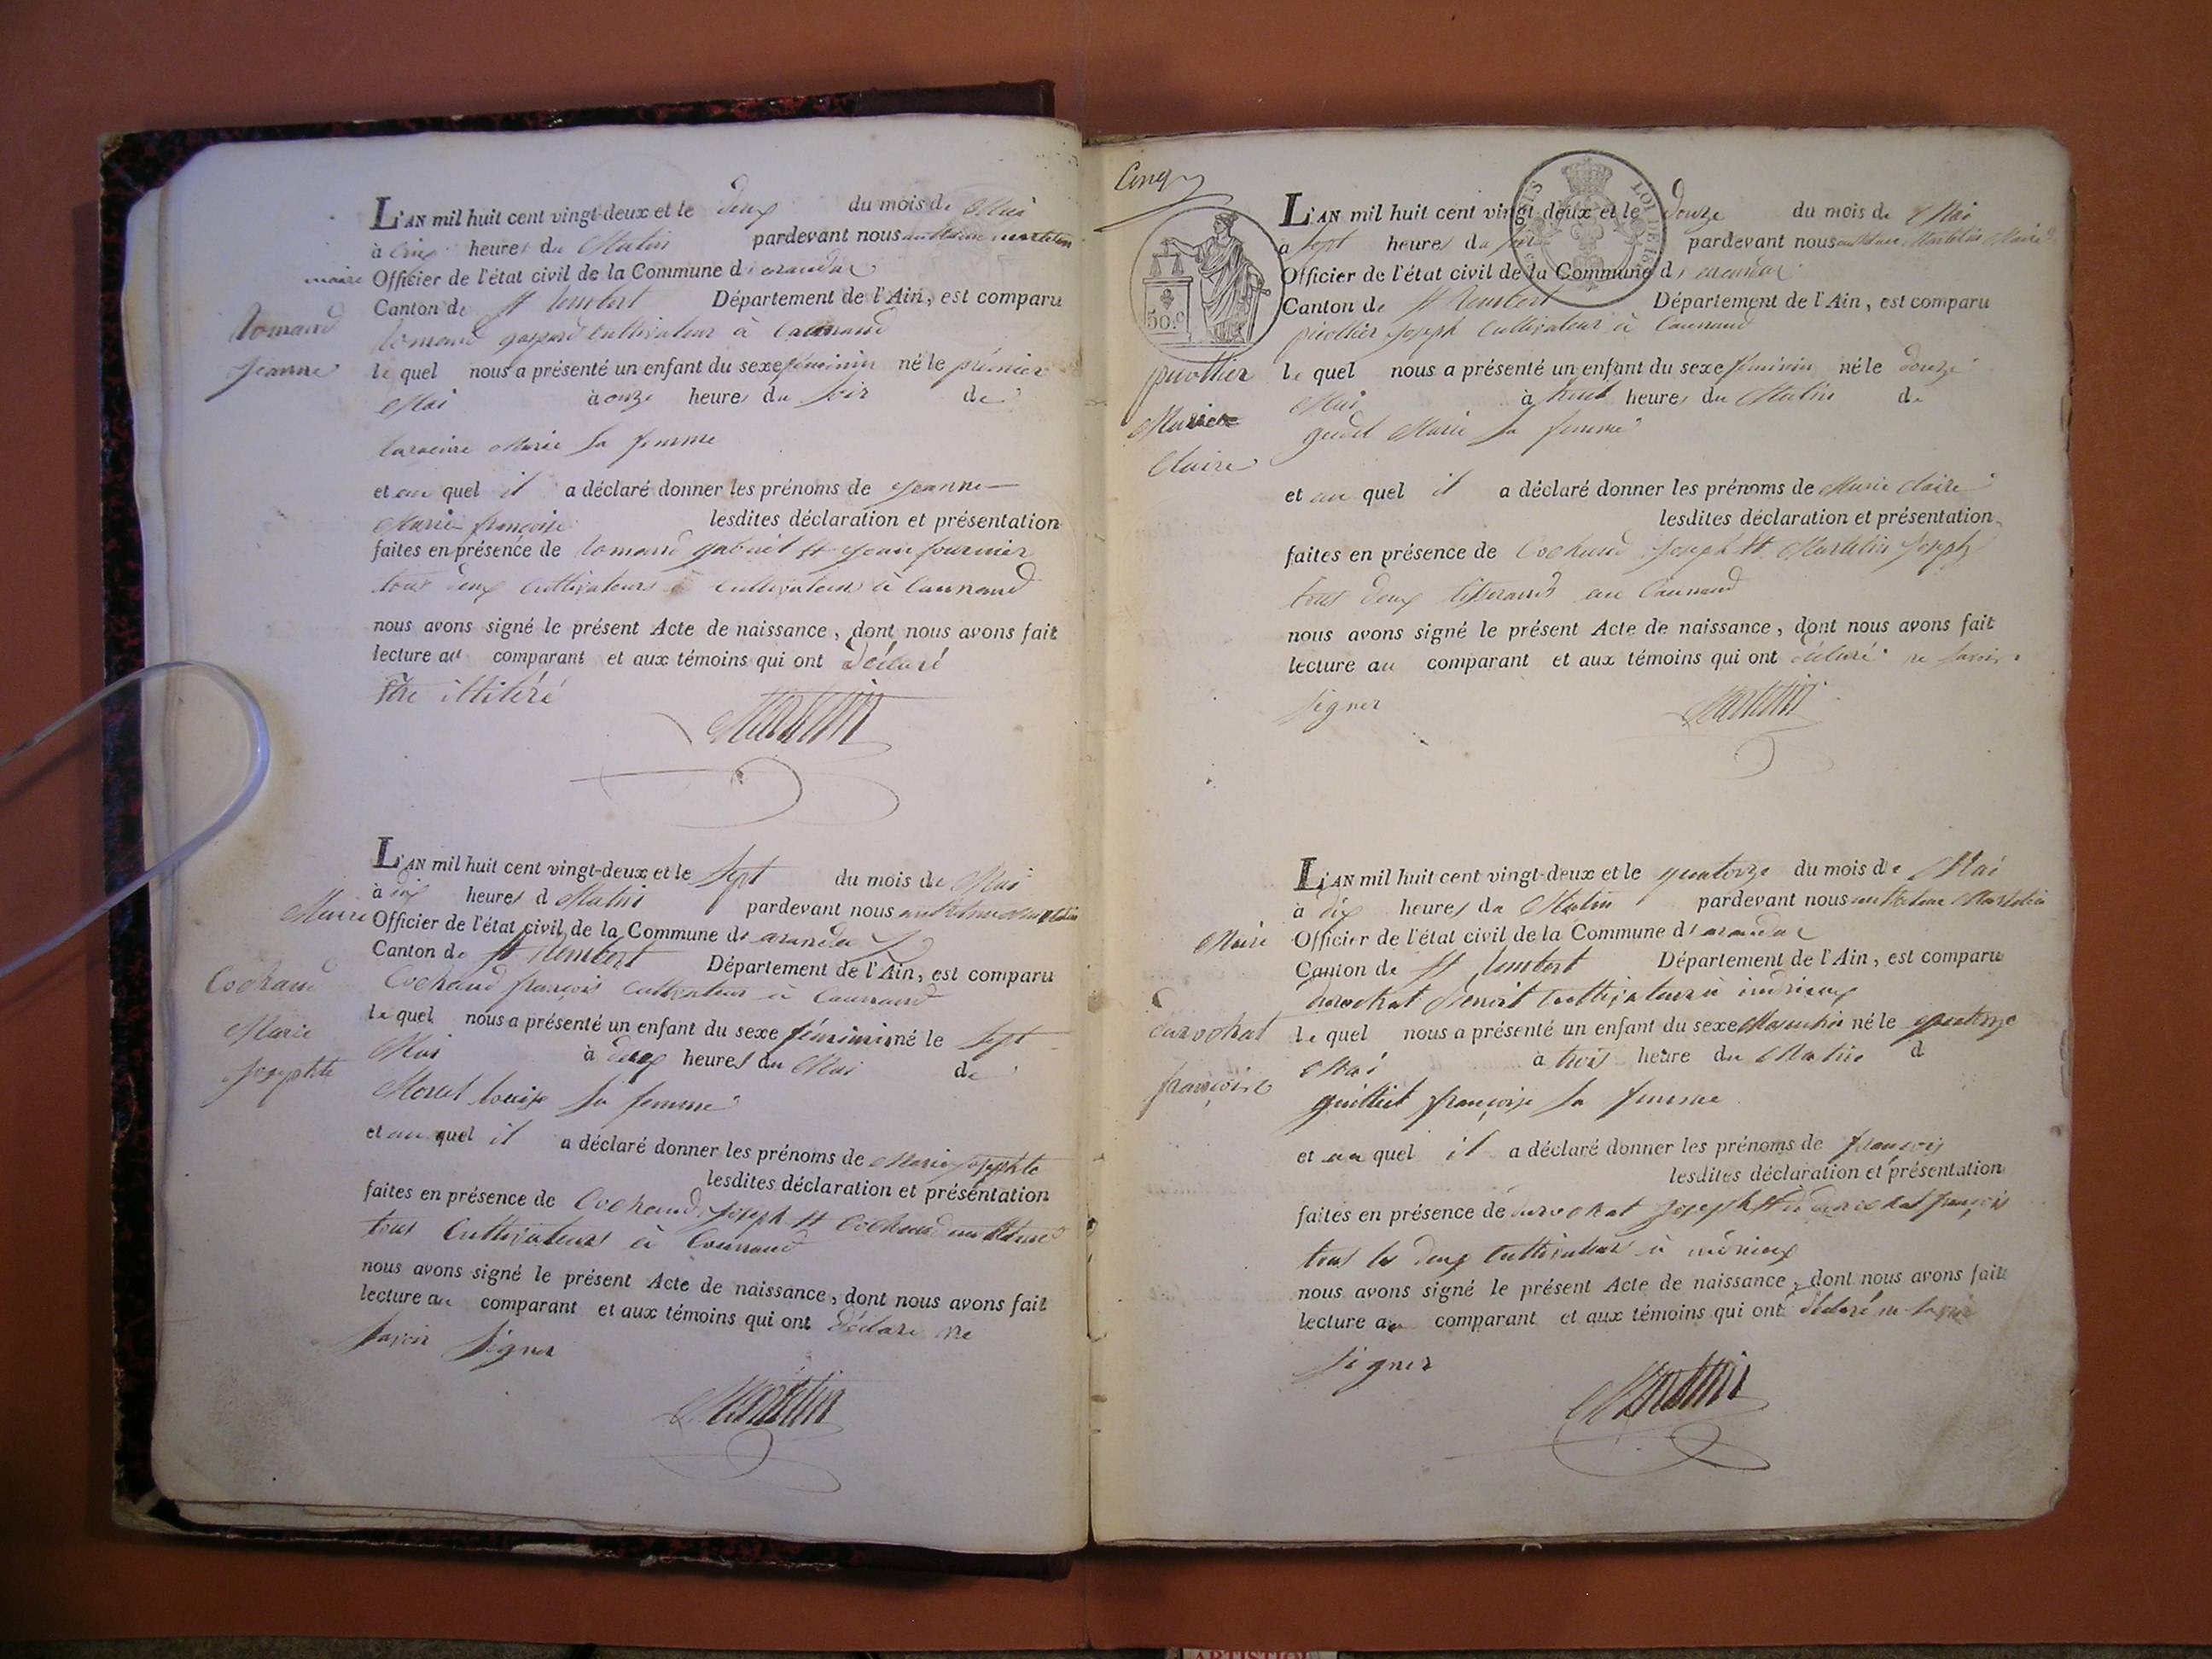 L'AN mil huit cent vingt-deux et le deux du mois de Mai
à cinq heures du Matin pardevant nous anthelme martelin
maire Officier de l'état civil de la Commune d'arandas
Canton de St rembert Département de l'Ain, est comparu
Romand Romand gaspard cultivateur à
Jeanne le quel nous a présenté un enfant du sexe féminin né le prémier
Mai à onze heures du soir de
Marie sa femme
et au quel il a déclaré donner les prénoms de jeanne
Marie françoise lesdites déclaration et présentation
faites en présence de Romand gabriel et jean fournier
tous deux cultivateurs à cultivateurs à
nous avons signé le présent Acte de naissance, dont nous avons fait
lecture au comparant et aux témoins qui ont déclaré
être illitéré
Martelin
L'AN mil huit cent vingt-deux et le sept du mois de Mai
à dix heures d Matin pardevant nous anthelme martelin
Maire Officier de l'état civil de la Commune de arandas
Canton de St Rembert Département de l'Ain, est comparu
Cochand Cochand françois cultivateur à
Marie le quel nous a présenté un enfant du sexe féminin né le sept
Josephte Mai à deux heures du Mai de
louise sa femme
et au quel il a déclaré donner les prénoms de Marie josephte
lesdites déclaration et présentation
faites en présence de Cochand Joseph et Cochand anthelme
tous cultivateurs à
nous avons signé le présent Acte de naissance, dont nous avons fait
lecture au comparant et aux témoins qui ont déclaré ne
savoir signer
Martelin
Cinq
LOI DE
50.c
L'AN mil huit cent vingt-deux et le douze du mois de Mai
à sept heures du soir pardevant nous anthelme Martelin Maire
Officier de l'état civil de la Commune d'arandas
Canton de St Rembert Département de l'Ain, est comparu
joseph cultivateur à
le quel nous a présenté un enfant du sexe féminin né le douze
Marie Mai à huit heures du Matin de
Claire Marie sa femme
et au quel il a déclaré donner les prénoms de Marie claire
lesdites déclaration et présentation
faites en présence de Cochand Joseph et Martelin Joseph
tous deux tisserands au
nous avons signé le présent Acte de naissance, dont nous avons fait
lecture au comparant et aux témoins qui ont déclaré ne savoir
signer
Martelin
L'AN mil huit cent vingt-deux et le quatorze du mois de Mai
à dix heures du Matin pardevant nous anthelme Martelin
Maire Officier de l'état civil de la Commune d'arandas
Canton de St rembert Département de l'Ain, est comparu
Benoit cultivateur à indrieux
le quel nous a présenté un enfant du sexe Masculin né le quatorze
Mai à trois heure du Matin d
françois françoise sa femme
et au quel il a déclaré donner les prénoms de françois
lesdites déclaration et présentation
faites en présence de Joseph et françois
tous les deux cultivateurs à indrieux
nous avons signé le présent Acte de naissance, dont nous avons fait
lecture au comparant et aux témoins qui ont déclaré ne savoir
signer
Martelin